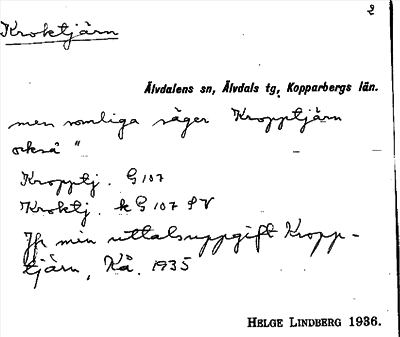 2
Kroktjärn
Älvdalens sn, Älvdals tg, Kopparbergs län.
men somliga säger Kropptjärn
också "
Kropptj. G 107
Kroktj. k G 107 SV
Jfr min uttalsuppgift Kropp-
tjärn, Kå. 1935
HELGE LINDBERG 1936.